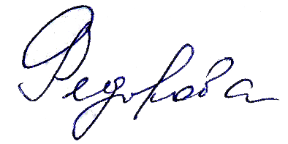 Федорова